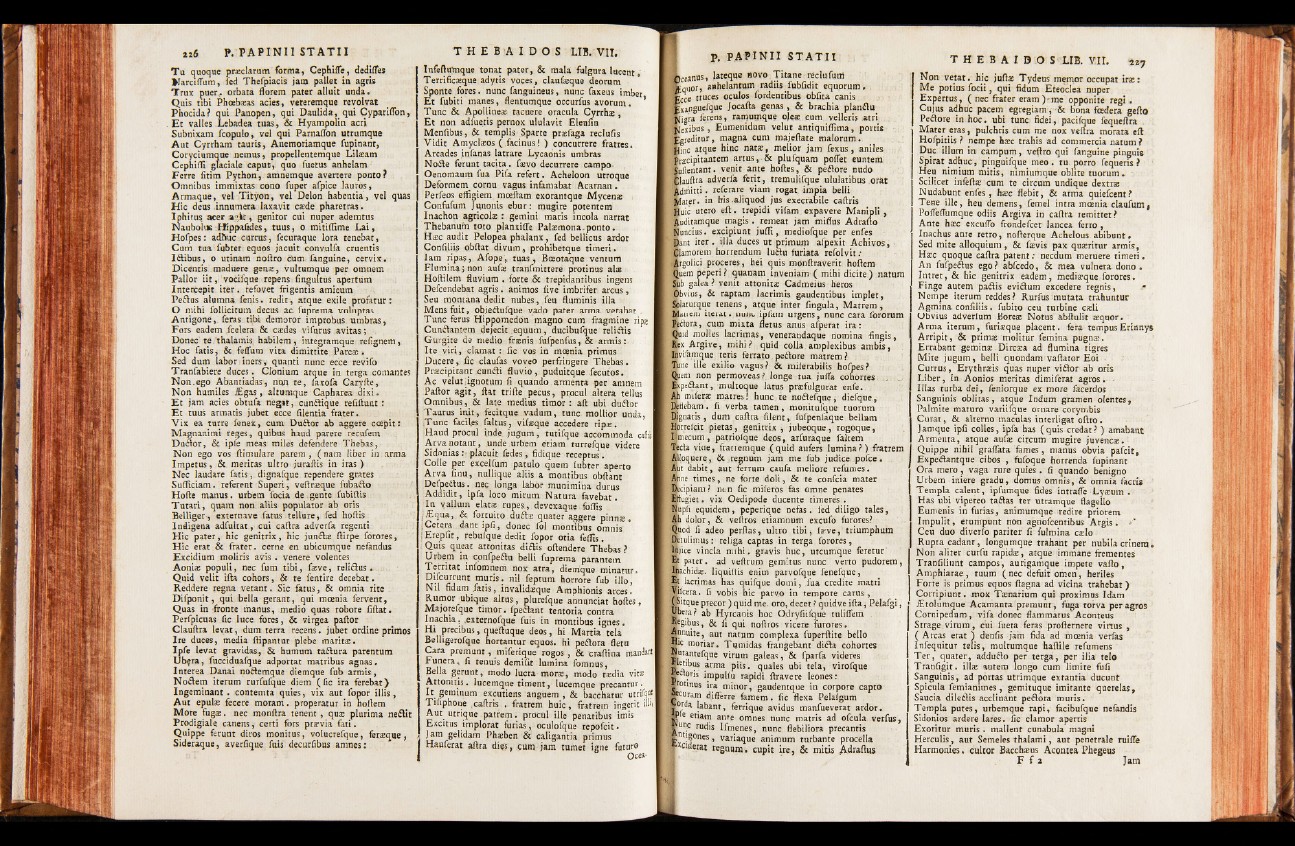 226 P. PAPINII STATII
Tu quoque præclarum forma, Cephisse, dedisses
Narcissum, sed Thespiacis jam pallet in agris
Trux puer. orbata florem pater alluit unda.
Quis tibi Phœbæas acies, veteremque revolvat
Phocida? qui Panopen, qui Daulida, qui Cyparisson,
Et valles Lebadea tuas, & Hyampolin acri
Subnixam scopulo, vel qui Parnasson utrumque
Aut Cyrrham tauris, Anemoriamque supinant,
Coryciumque nemus, propellentemque Lilæam
Cephissi glaciale caput, quo suetus anhelam
Ferre sitim Python, amnemque avertere ponto?
Omnibus immixtas cono super aspice lauros,
Armaque, vel Tityon, vel Delon habentia, vel quas
Hic deus innumera laxavit cæde pharetras.
Iphitus acer agit, genitor cui nuper ademtus
Naubolus Hippasides, tuus, o mitissime Lai,
Hospes: adhuc currus, securaque lora tenebat,
Cum tua subter equos jacuit convulsa cruentis
Ictibus, o utinam nostro cum sanguine, cervix.
Dicentis maduere genæ, vultumque per omnem
Pallor iit, vocisque repens singultus apertum
Intercepit iter. refovet frigentis amicum
Pectus alumna senis. redit, atque exile profatur:
O mihi sollicitum decus ac suprema voluptas
Antigone, seras tibi demoror improbus umbras,
Fors eadem scelera & cædes visurus avitas;
Donec te thalamis habilem, integramque resignem,
Hoc satis, & fessum vita dimitite Parcæ.
Sed dum labor iners, quanti nunc ecce reviso
Transabiere duces. Clonium atque in terga comantes
Non ego Abantiadas, non te, saxosa Caryste,
Non humiles Ægas, altumque Capharea dixi.
Et jam acies obtusa negat, cunctique resistunt:
Et tuus armatis jubet ecce silentia frater.
Vix ea turre senex, cum Ductor ab aggere cœpit:
Magnanimi reges, quibus haud parere recusem
Ductor, & ipse meas miles defendere Thebas,
Non ego vos stimulare parem, (nam liber in arma
Impetus, & meritas ultro jurastis in iras)
Nec laudare satis, dignasque rependere grates
Sufficiam. referent Superi, vestræque subacto
Hoste manus. urbem socia de gente subistis
Tutari, quam non aliis populator ab oris
Belliger, externave satus tellure, sed hostis
Indigena adsultat, cui castra adversa regenti
Hic pater, hic genitrix, hic junctæ stirpe sorores,
Hic erat & frater. cerne en ubicumque nefandus
Excidium moliris avis. venere volentes
Aoniæ populi, nec sum tibi, sæve, relictus.
Quid velit ista cohors, & te sentire decebat.
Reddere regna vetant. Sic fatus, & omnia rite
Disponit, qui bella gerant, qui mœnia servent,
Quas in fronte manus, medio quas robore sistat.
Perspicuas sic luce fores, & virgea pastor
Claustra levat, dum terra recens. jubet ordine primos
Ire duces, media stipantur plebe maritæ.
Ipse levat gravidas, & humum tactura parentum
Ubera, succiduasque adportat matribus agnas.
Interea Danai noctemque diemque sub armis,
Noctem iterum rursusque diem (sic ira ferebat)
Ingeminant. contemta quies, vix aut sopor illis,
Aut epulæ fecere moram. properatur in hostem
More fugæ. nec monstra tenent, quæ plurima nectit
Prodigiale canens, certi fors prævia fati.
Quippe ferunt diros monitus, volucresque, feræque,
Sideraque, aversique suis decursibus amnes:
THEBAIDOS LIB. VII.
Infestumque tonat pater, & mala fulgura lucent,
Terrificæque adytis voces, clausæque deorum
Sponte fores. nunc sanguineus, nunc saxeus imber,
Et subiti manes, flentumque occursus avorum.
Tunc & Apollineæ tacuere oracula Cyrrhæ,
Et non adsuetis pernox ululavit Eleusin
Mensibus, & templis Sparte præsaga reclusis
Vidit Amyclæos (facinus!) concurrere fratres.
Arcades insanas latrare Lycaonis umbras
Nocte ferunt tacita. sævo decurrere campo
Oenomaum sua Pisa refert. Acheloon utroque
Deformem cornu vagus infamabat Acarnan.
Perseos effigiem mœstam exorantque Mycenæ
Confusum Junonis ebur: mugire potentem
Inachon agricolæ: gemini maris incola narrat
Thebanum toto planxisse Palæmona ponto.
Hæc audit Pelopea phalanx, sed bellicus ardor
Consiliis obstat divum, prohibetque timeri.
Jam ripas, Asope, tuas, Bœotaque ventum
Flumina; non ausæ transmittere protinus alæ
Hostilem fluvium. forte & trepidantibus ingens
Descendebat agris. animos sive imbrifer arcus,
Seu montana dedit nubes, seu fluminis illa
Mens fuit, objectusque vado pater arma vetabat.
Tunc ferus Hippomedon magno cum fragmine ripæ
Cunctantem dejecit equum, ducibusque relictis
Gurgite de medio frœnis suspensus, & armis:
Ite viri, clamat: sic vos in mœnia primus
Ducere, sic clausas voveo perfringere Thebas.
Præcipitant cuncti fluvio, puduitque secutos.
Ac velut ignotum si quando armenta per amnem
Pastor agit, stat triste pecus, procul altera tellus
Omnibus, & late medius timor: ast ubi ductor
Taurus init, fecitque vadum, tunc mollior unda,
Tunc faciles saltus, visæque accedere ripæ.
Haud procul inde jugum, tutisque accommoda castris
Arva notant, unde urbem etiam turresque videre
Sidonias: placuit sedes, fidique receptus.
Colle per excelsum patulo quem subter aperto
Arva sinu, nullique aliis a montibus obstant
Despectus. nec longa labor munimina durus
Addidit, ipsa loco mirum Natura favebat.
In vallum elatæ rupes, devexaque fossis
Æqua, & fortuito ductæ quater aggere pinnæ.
Cetera dant ipsi, donec sol montibus omnis
Erepsit, rebusque dedit sopor otia fessis.
Quis queat attonitas dictis ostendere Thebas?
Urbem in conspectu belli suprema parantem
Territat infomnem nox atra, diemque minatur.
Discurrunt muris. nil septum horrore sub illo,
Nil fidum satis, invalidæque Amphionis arces.
Rumor ubique altus, pluresque annunciat hostes,
Majoresque timor. spectant tentoria contra
Inachia, externosque suis in montibus ignes.
Hi precibus, questuque deos, hi Martia tela
Belligerosque hortantur equos. hi pectora fletu
Cara premunt, miserique rogos, & crastina mandant
Funera, si tenuis demisit lumina somnus,
Bella gerunt, modo lucra moræ, modo tædia vitæ
Attonitis. lucemque timent, lucemque precantur.
It geminum excutiens anguem, & bacchatur utrisque
Tisiphone castris. fratrem huic, fratrem ingerit illi,
Aut utrique patrem. procul ille penatibus imis
Excitus implorat furias, oculosque reposcit.
Jam gelidam Phæben & caligantia primus
Hauserat astra dies, cum jam tumet igne futuro
Ocea-
P. PAPINII STATII
Oceanus, lateque novo Titane reclusum
Æquor, anhelantum radiis subsidit equorum.
Ecce truces oculos sordentibus obsita canis
Exanguesque Jocasta genas, & brachia planctu
Nigra ferens, ramumque oleæ cum velleris atri
Nexibus, Eumenidum velut antiquissima, portis
Egreditur, magna cum majestate malorum.
Hinc atque hinc natæ, melior jam sexus, aniles
Præcipitantem artus, & plusquam posset euntem
Sustentant. venit ante hostes, & pectore nudo
Claustra adversa ferit, tremulisque ululatibus orat
Admitti. referare viam rogat impia belli
Mater. in his aliquod jus execrabile castris
Huic utero est. trepidi visam expavere Manipli,
Auditamque magis. remeat jam missus Adrasto
Nuncius. excipiunt jussi, mediosque per enses
Dant iter. illa duces ut primum aspexit Achivos,
Clamorem horrendum luctu furiata resolvit:
Argolici proceres, hei quis monstraverit hostem
Quem peperi? quanam inveniam (mihi dicite) natum
Sub galea? venit attonitæ Cadmeius heros
Obvius, & raptam lacrimis gaudentibus implet,
Solaturque tenens, atque inter singula, Matrem,
Matrem iterat. nunc ipsam urgens, nunc cara sororum
Pectora, cum mixta fletus anus asperat ira:
Quid molles lacrimas, venerandaque nomina fingis,
Rex Argive, mihi? quid colla amplexibus ambis,
Invisamque teris ferrato pectore matrem?
Tune ille exilio vagus? & miserabilis hospes?
Quem non permoveas? longe tua jussa cohortes
Expectant, multoque latus præfulgurat ense.
Ah miseræ matres! hunc te noctesque, diesque,
Deflebam. si verba tamen, monitusque tuorum
Dignaris, dum castra silent, suspensaque bellum
Horrescit pietas, genitrix, jubeoque, rogoque,
I mecum, patriosque deos, arsuraque saltem
Tecta vise, fratremque (quid aufers lumina?) fratrem
Alloquere, & regnum jam me sub judice posce.
Aut dabit, aut ferrum causa meliore resumes.
Anne times, ne forte doli, & te conscia mater
Decipiam? non sic miseros fas omne penates
Effugiet. vix Oedipode ducente timeres.
Nupsi equidem, peperique nefas. sed diligo tales,
Ah dolor, & vestros etiamnum excuso furores?
Quod si adeo perstas, ultro tibi, sæve, triumphum
Detulimus: religa captas in terga sorores,
Injice vincla mihi. gravis huc, utcumque feretur
Et pater. ad vestrum gemitus nunc verto pudorem,
Inachidæ. liquistis enim parvosque senesque,
Et lacrimas has quisque domi, sua credite matri
Viscera. si vobis hic parvo in tempore carus,
(Sitque precor) quid me. oro, decet? quidve ista, Pelasgi,
Ubera? ab Hyrcanis hoc Odrysiisque tulissem
Regibus, & si qui nostros vicere furores.
Annuite, aut natum complexa superstite bello
Hic moriar. Tumidas frangebant dicta cohortes
Nutantesque virum galeas, & sparsa videres
Fletibus arma piis. quales ubi tela, virosque
Pectoris impulsu rapidi stravere leones:
Protinus ira minor, gaudentque in corpore capto
Securam differre famem. sic flexa Pelasgum
Corda labant, ferrique avidus mansueverat ardor.
Ipse etiam ante omnes nunc matris ad oscula versus,
Nunc rudis Ismenes, nunc flebiliora precantis
Antigones, variaque animum turbante procella
Exciderat regnum. cupit ire, & mitis Adrastus
THEBAIDOS LIB. VII. 227
Non vetat. hic justæ Tydeus memor occupat iræ:
Me potius socii, qui fidum Eteoclea nuper
Expertus, (nec frater eram) me opponite regi.
Cujus adhuc pacem egregiam, & bona fœdera gesto
Pectore in hoc. ubi tunc fidei, pacisque sequestra
Mater eras, pulchris cum me nox vestra morata est
Hospitiis? nempe hæc trahis ad commercia natum?
Duc illum in campum, vestro qui sanguine pinguis
Spirat adhuc, pinguisque meo. tu porro sequeris?
Heu nimium mitis, nimiumque oblite tuorum.
Scilicet infestæ cum te circum undique dextræ
Nudabunt enses, hæc flebit, & arma quiescent?
Tene ille, heu demens, semel intra mœnia clausum,
Possessumque odiis Argiva in castra remittet?
Ante hæc excusso frondescet lancea ferro,
Inachus ante retro, nosterque Achelous abibunt.
Sed mite alloquium, & sævis pax quæritur armis,
Hæc quoque castra patent: necdum meruere timeri.
An suspectus ego? abscedo, & mea vulnera dono.
Intret, & hic genitrix eadem, mediæque sorores.
Finge autem pactis evictum excedere regnis,
Nempe iterum reddes? Rursus mutata trahuntur
Agmina consiliis. subito ceu turbine cæli
Obvius adversum Boreæ Notus abstulit æquor.
Arma iterum, furiæque placent. fera tempus Erinnys
Arripit, & primæ molitur semina pugnæ.
Errabant geminæ Dircæa ad flumina tigres
Mite jugum, belli quondam vastator Eoi
Currus, Erythræis quas nuper victor ab oris
Liber, in Aonios meritas dimiserat agros.
Illas turba dei, seniorque ex more sacerdos
Sanguinis oblitas, atque Indum gramen olentes,
Palmite maturo variisque ornare corymbis
Curat, & alterno maculas interligat ostro.
Jamque ipsi colles, ipsa has (quis credat?) amabant
Armenta, atque ausæ circum mugire juvencæ.
Quippe nihil grassata fames, manus obvia pascit,
Expectantque cibos, fusoque horrenda supinant
Ora mero, vaga rure quies. si quando benigno
Urbem iniere gradu, domus omnis, & omnia sacris
Templa calent, ipsumque fides intrasse Lyæum.
Has ubi vipereo tactas ter utramque flagello
Eumenis in furias, animumque redire priorem
Impulit, erumpunt non agnoscentibus Argis.
Ceu duo diverso pariter si fulmina cælo
Rupta cadant, longumque trahant per nubila crinem.
Non aliter cursu rapidæ, atque immane frementes
Transiliunt campos, aurigamque impete vasto,
Amphiarae, tuum (nec defuit omen, heriles
Forte is primus equos stagna ad vicina trahebat)
Corripiunt. mox Tænarium qui proximus Idam
Ætolumque Acamanta premunt, fuga torva per agros
Cornipedum, visa donec flammatus Aconteus
Strage virum, cui sueta feras prosternere virtus,
(Arcas erat) densis jam fida ad mœnia versas
Insequitur telis, multumque hastile resumens
Ter, quater, adducto per terga, per ilia telo
Transigit. illæ autem longo cum limite fusi
Sanguinis, ad portas utrimque extantia ducunt
Spicula semianimes, gemituque imitante querelas,
Saucia dilectis acclinant pectora muris.
Templa putes, urbemque rapi, facibusque nefandis
Sidonios ardere lares. sic clamor apertis
Exoritur muris. mallent cunabula magni
Herculis, aut Semeles thalami, aut penetrale ruisse
Harmonies. cultor Bacchæus Acontea Phegeus
F f 2 Jam